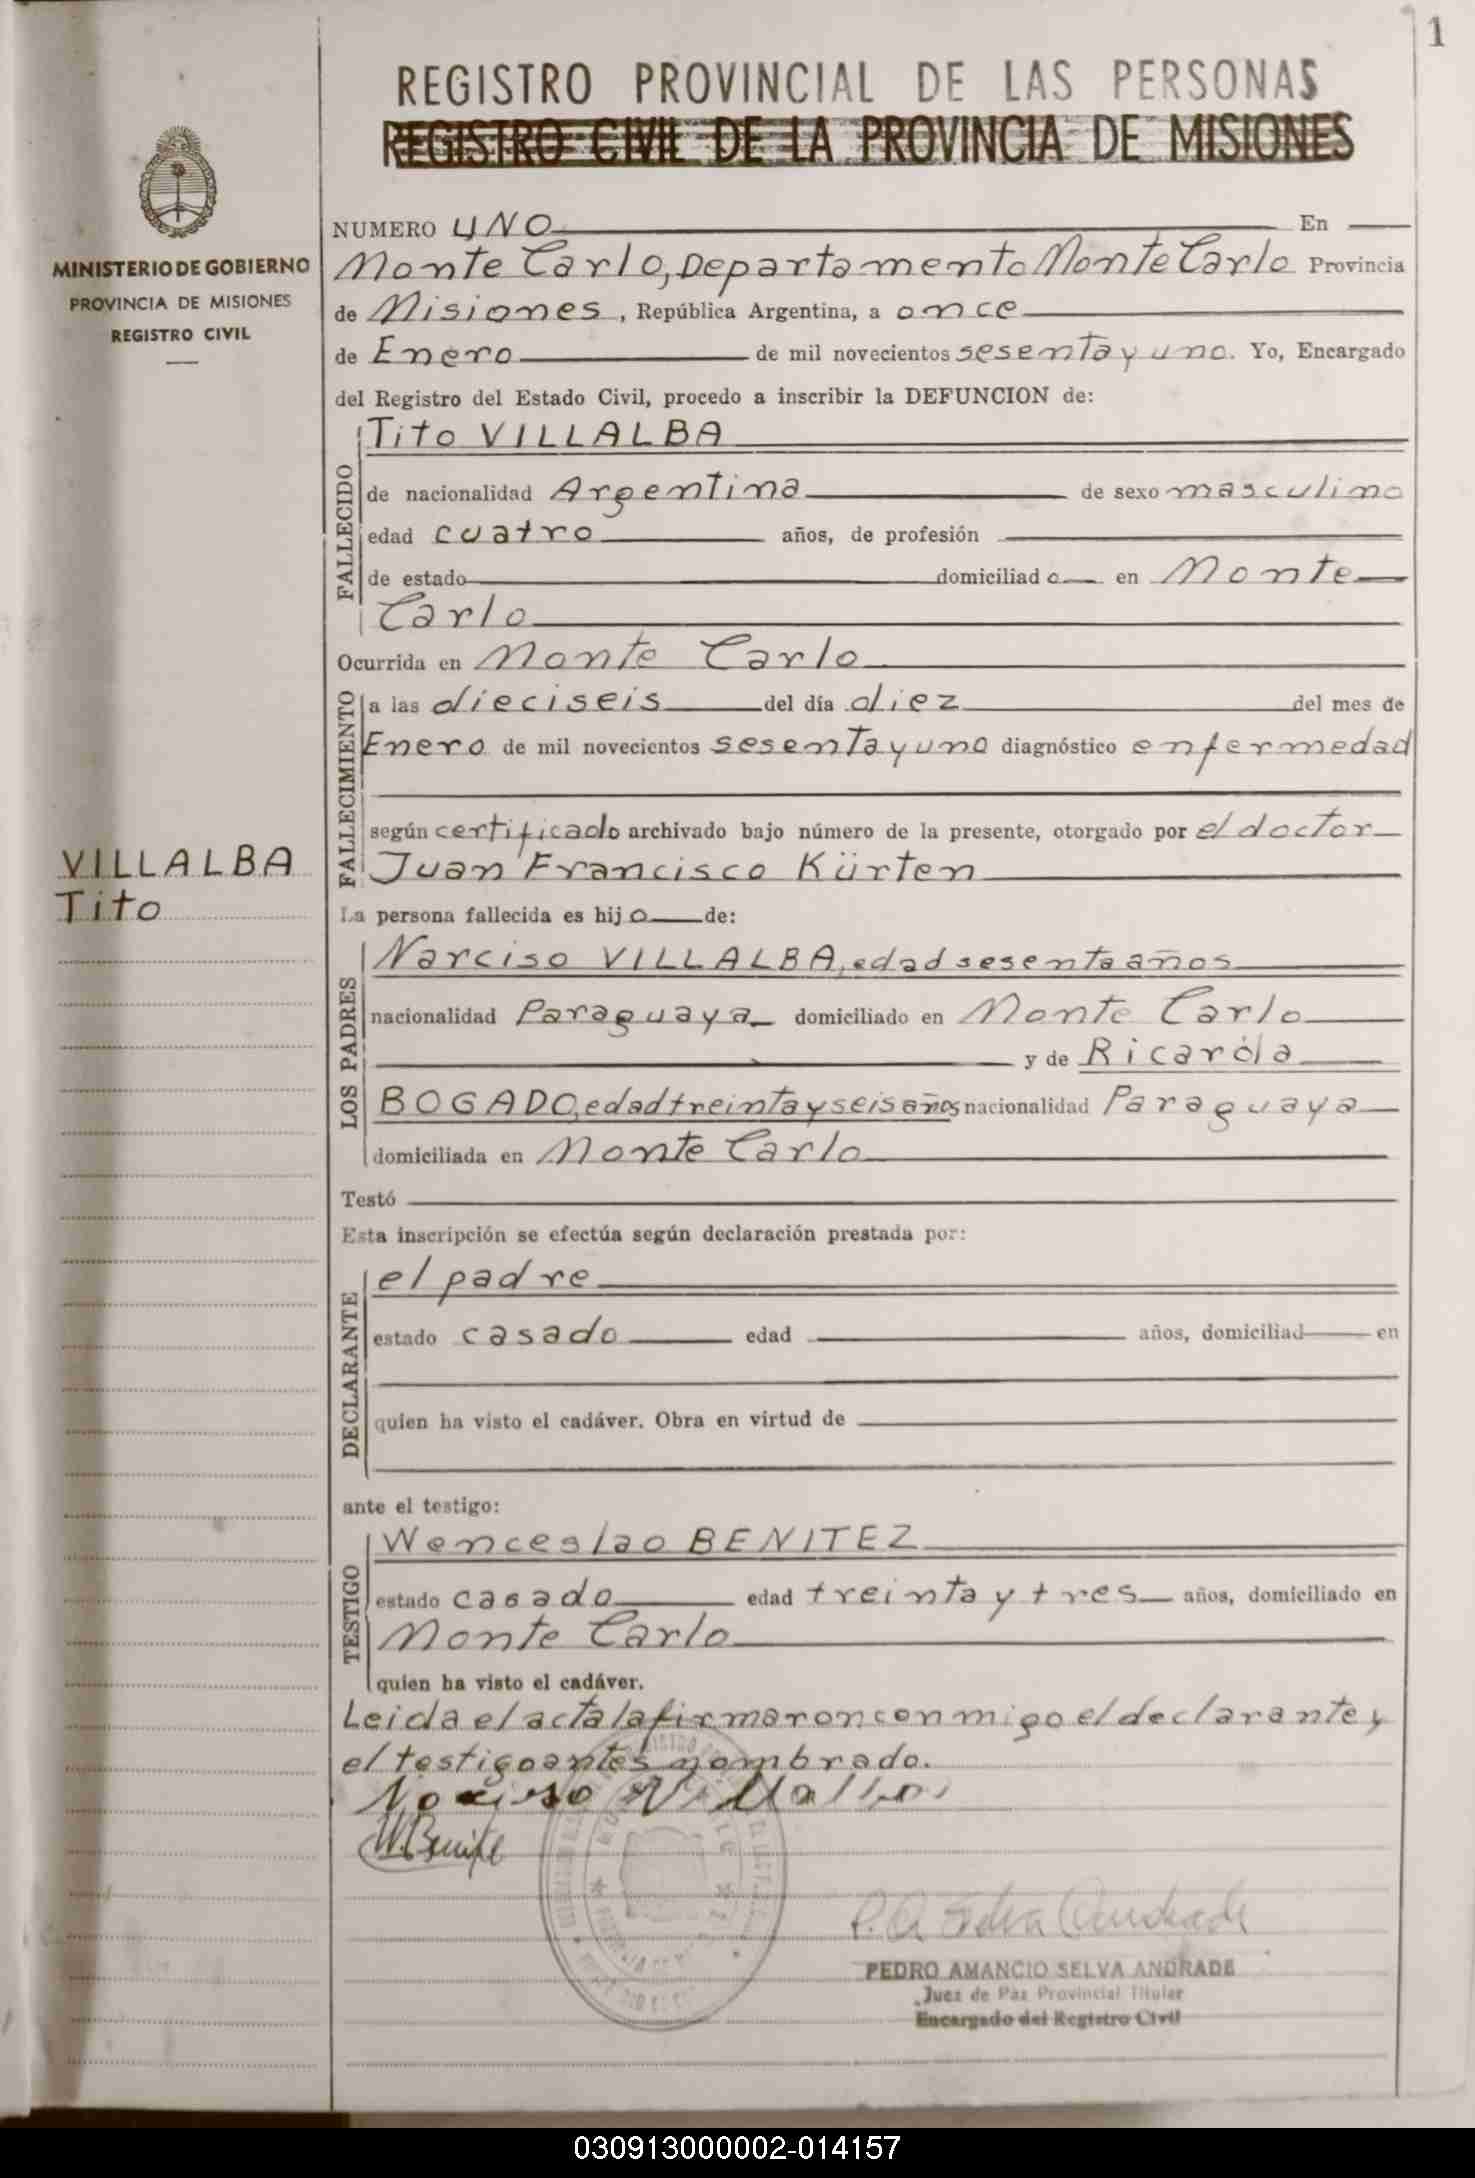 1
REGISTRO PROVINCIAL DE LAS PERSONAS
REGISTRO CIVIL DE LA PROVINCIA DE MISIONES
MINISTERIO DE GOBIERNO
PROVINCIA DE MISIONES
REGISTRO CIVIL
NUMERO UNO En
Monte Carlo, Departamento Monte Carlo Provincia
de Misiones, República Argentina, a once
de Enero de mil novecientos sesenta y uno. Yo, Encargado
del Registro del Estado Civil, procedo a inscribir la DEFUNCION de:
FALLECIDO
Tito VILLALBA
de nacionalidad Argentina de sexo masculino
edad cuatro años, de profesión
de estado domiciliado en Monte
Carlo
Ocurrida en Monte Carlo
FALLECIMIENTO
a las dieciseis del día diez del mes de
Enero de mil novecientos sesenta y uno diagnóstico enfermedad
según certificado archivado bajo número de la presente, otorgado por el doctor
Juan Francisco Kürten
VILLALBA
Tito
La persona fallecida es hijo de:
LOS PADRES
Narciso VILLALBA, edad sesenta años
nacionalidad Paraguaya domiciliado en Monte Carlo
y de Ricarda
BOGADO, edad treinta y seis años nacionalidad Paraguaya
domiciliada en Monte Carlo
Testó
Esta inscripción se efectúa según declaración prestada por:
DECLARANTE
el padre
estado casado edad años, domiciliad en
quien ha visto el cadáver. Obra en virtud de
ante el testigo:
TESTIGO
Wenceslao BENITEZ
estado casado edad treinta y tres años, domiciliado en
Monte Carlo
quien ha visto el cadáver.
Leida el acta la firmaron conmigo el declarante y
el testigo antes nombrado.
Narciso Villalba
W. Benite
P. A. Selva Andrade
PEDRO AMANCIO SELVA ANDRADE
Juez de Paz Provincial Titular
Encargado del Registro Civil
030913000002-014157